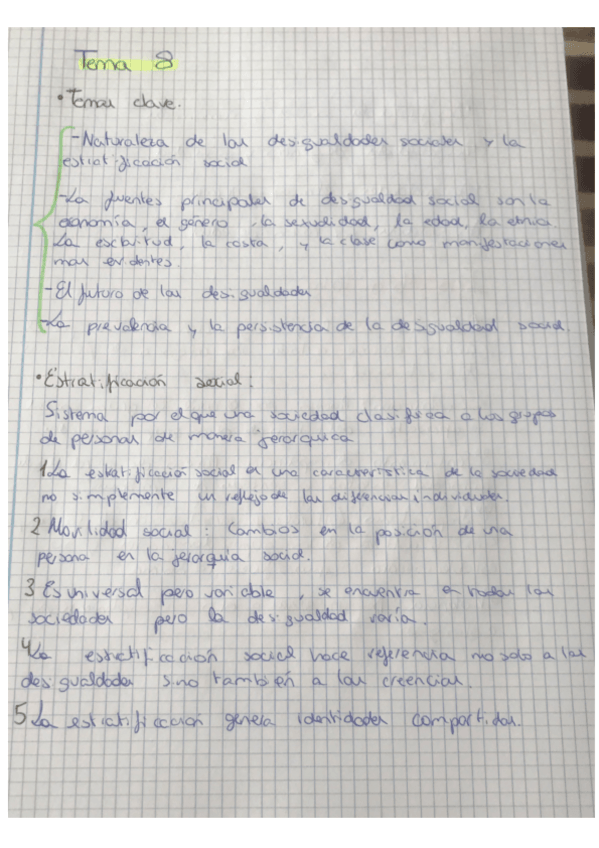 Tema 8
• Temas clave.
- Naturaleza de las desigualdades sociales y la
estratificación social
- La fuentes principales de desigualdad social son la
economía, el género, la sexualidad, la edad, la etnia.
La esclavitud, la casta, y la clase como manifestaciones
mas evidentes.
- El futuro de las desigualdades
- La prevalencia y la persistencia de la desigualdad social.
• Estratificación social:
Sistema por el que una sociedad clasifica a los grupos
de personas de manera jerarquica
1 La estratificación social es una caracteristica de la sociedad
no simplemente un reflejo de las diferencias individuales.
2 Movilidad social: Cambios en la posición de una
persona en la jerarquia social.
3 Es universal pero variable, se encuentra en todas las
sociedades pero la desigualdad varía.
4 La estratificación social hace referencia no solo a las
desigualdades sino también a las creencias.
5 La estratificación genera identidades compartidas.